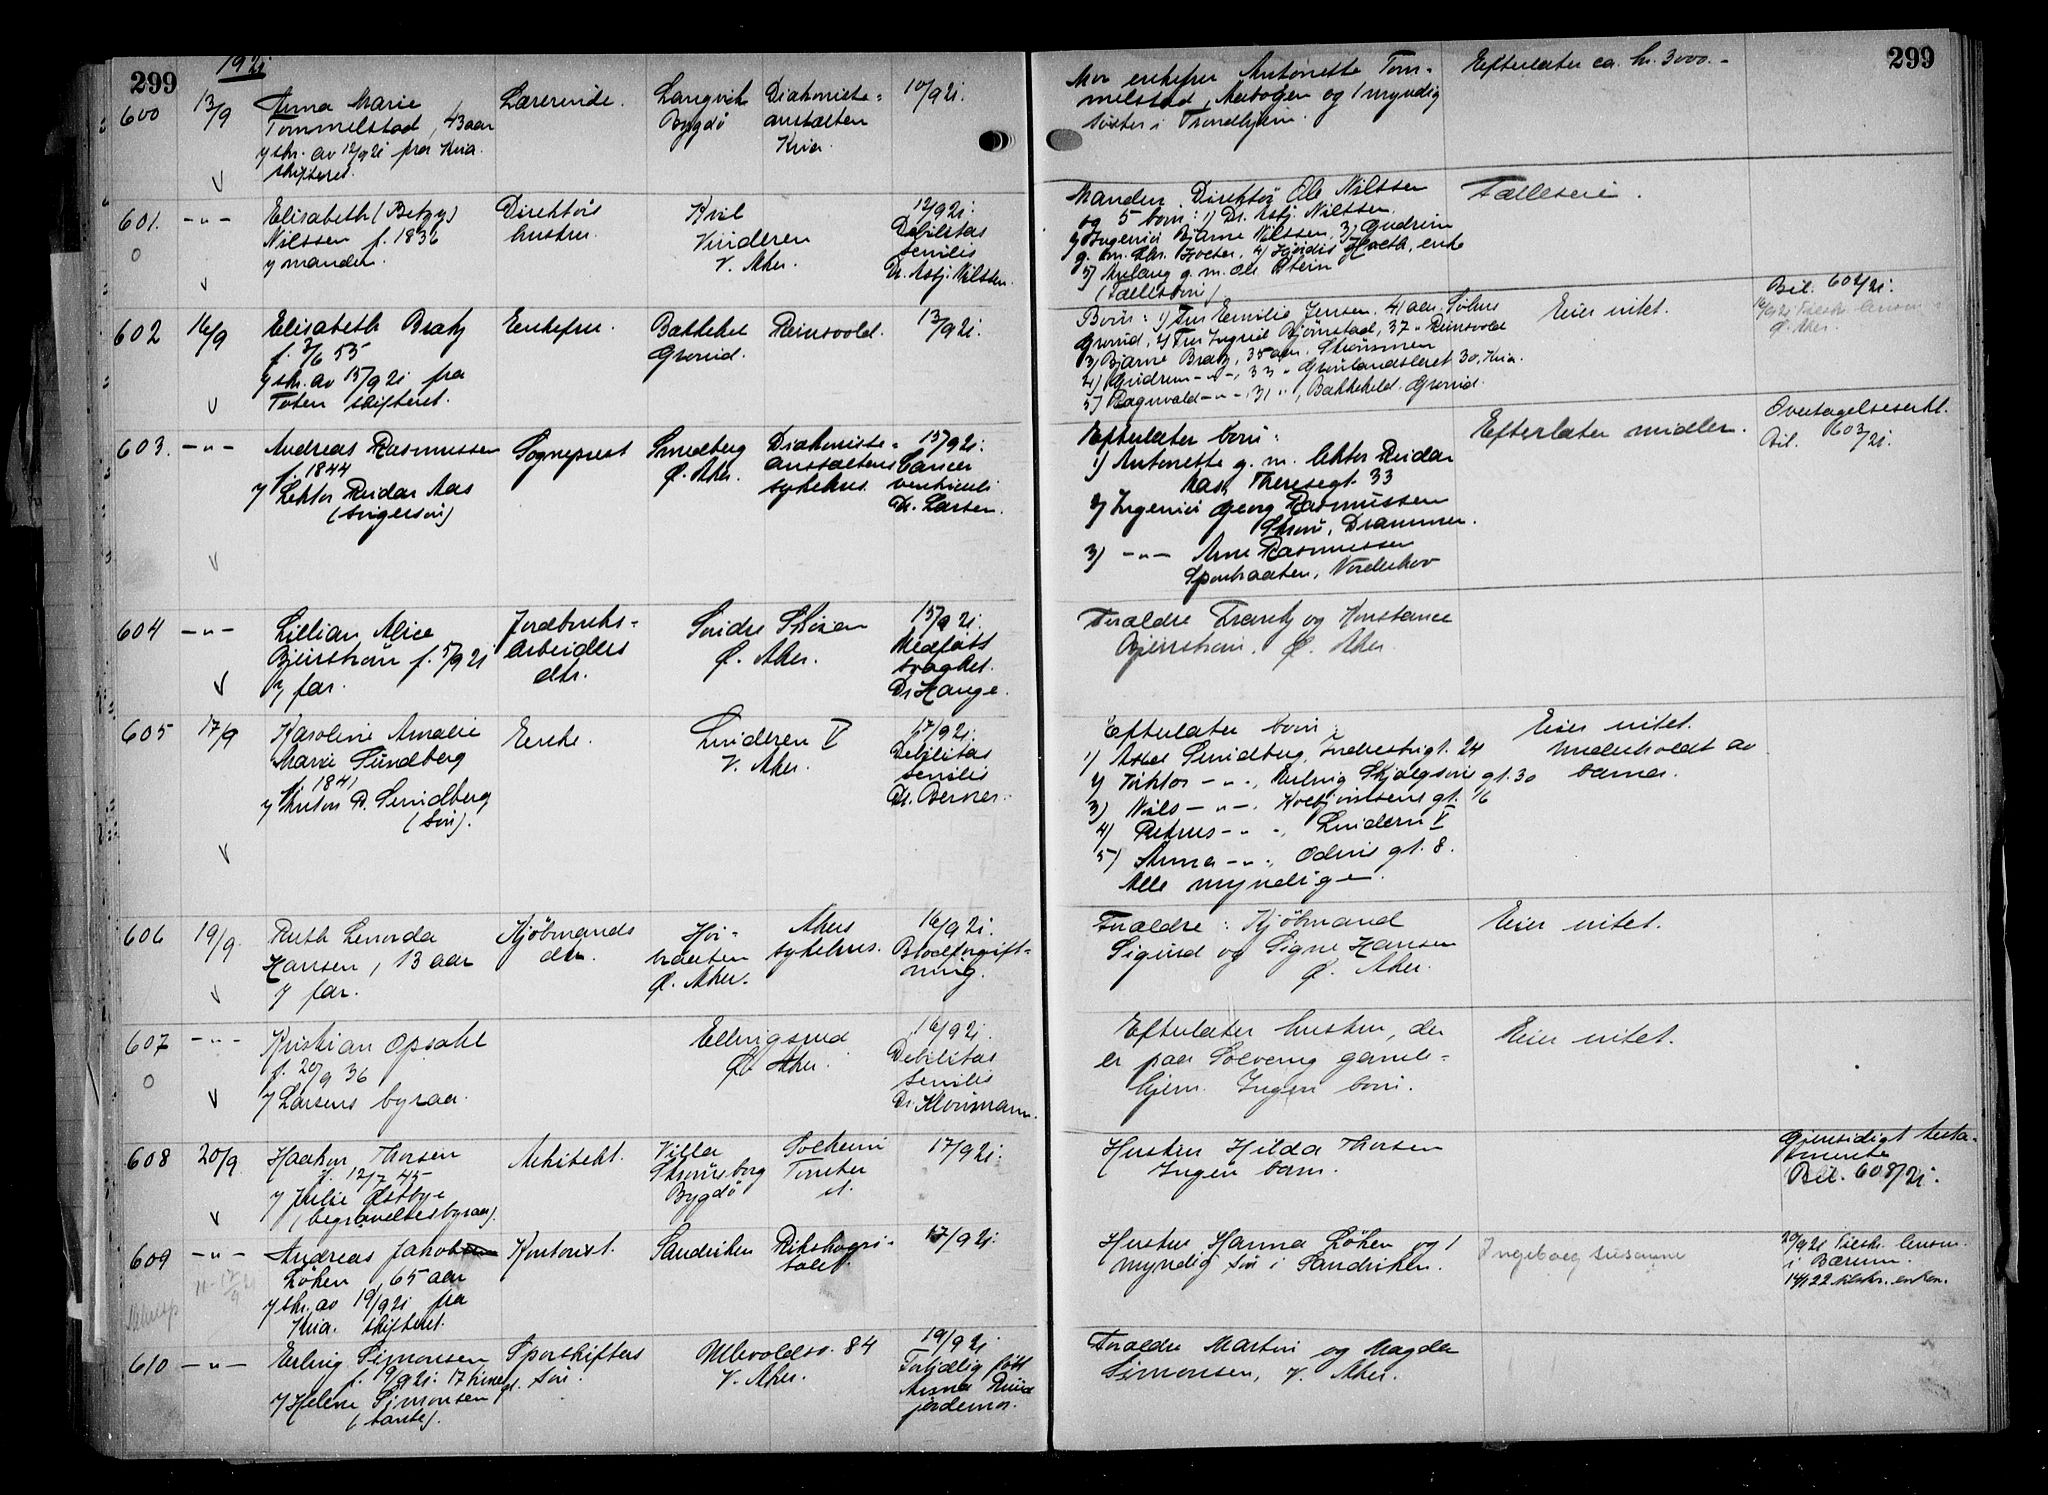 299
1921
600
13/9
Anna Marie
Tommelstad, 43 aar
Lærerinde.
Langvik
Bygdö
Diakonisse-
anstalten
Kria.
10/9 21.
y skr. av 12/9 21 fra Kria.
skifteret.
Mor enkefru Antonette Tom-
melstad, og 1 myndig
søster i Trondhjem.
Efterlater ca. kr. 3000.-
299
601.
-"-
Elisabeth (Betzy)
Nilssen f. 1836
y manden.
Direktörs
hustru.
Kvil
Vinderen
V. Aker.
12/9 21.
Debilitas
senilis
Dr. Asbj. Nilssen.
Manden, Direktör Ole Nilssen
og 5 barn: 1) Dr. Asbj. Nilssen.
2) Ingeniør Bjarne Nilssen, 3) Gudrun
g. m. Chr. Holter, 4) Hjördis Hoeth, enke
5) Aslaug g. m. Ole Stein
(Fællesbarn)
Fælleseie.
602
16/9
Elisabeth Bratz
f. 3/6 55
y skr. av 15/9 21 fra
Toten skifteret.
Enkefru.
Bakkehel
Grorud.
Reinsvold.
13/9 21.
Barn: 1) Fru Emilie Jensen, 41 aar,
Grorud, 2) Fru Ingrid Bjørnstad, 37 " Reinsvold
3) Bjarne Bratz, 35 aar, Strömmen
4) Gudrun -"-, 33 " Grönlandsleret 30, Kria.
5) Ragnvald -"-, 31 ", Bakkehel Grorud.
Eier intet.
Bil. 602/21.
16/9 21 Tilskr. lensm.
Ø. Aker.
603.
-"-
Andreas Rasmussen
f. 1844
y Lektor Reidar Aas
(svigersøn)
Sogneprest
Smedberg
Ø. Aker.
Diakonisse-
anstaltens
sykehus.
15/9 21.
Cancer
ventriculi
Dr. Larsen.
Efterlater barn:
1) Antonette g. m. lektor Reidar
Aas, Theresegt. 33
2) Ingeniør Georg Rasmussen
Drammen.
3) -"- Arne Rasmussen
Norderhov
Efterlater midler.
Overtagelseserkl.
Bil. 603/21.
604
-"-
Lillian Alice
Bjurström f. 5/9 21
y far.
Jordbruks-
arbeiders
dtr.
Søndre Skøien
Ø. Aker.
15/9 21.
Medfött
svaghet.
Dr Hauge.
Foræl​dre Frantz og Konstance
Bjurström, Ø. Aker.
605
17/9
Karoline Amalie
Marie Sundberg
f. 1841
y Anton P. Sundberg
(søn).
Enke.
Linderen V
V. Aker.
17/9 21.
Debilitas
senilis
Dr. Berner.
Efterlater barn:
1) Axel Sundberg, 24
2) Viktor -"-, Erling Skjalgsøns gt. 30
3) Nils -"-, 16
4) Petrus -"-, Linderen V
5) Anna -"-, Odins gt. 8.
Alle myndige.
Eier intet.
Underholdt av
barna.
606
19/9.
Ruth Lenorda
Hansen, 13 aar
y far.
Kjöbmands
dtr.
Høi-
braaten
Ø. Aker.
Akers
sykehus.
16/9 21.
Blodforgift-
ning.
Forældre: Kjöbmand
Sigurd og Signe Hansen
Ø. Aker.
Eier intet.
607
-"-
Kristian Opsahl
f. 20/9 36
y Larsens byraa.
Ellingsrud
Ø. Aker.
16/9 21.
Debilitas
senilis
Dr. Klousmann.
Efterlater hustru, der
er paa Solvang gamle-
hjem. Ingen barn.
Eier intet.
608
20/9.
Haakon Thorsen
f. 12/7 45
y Julie Østbye
(begravelsesbyraa).
Arkitekt.
Villa
Strømsborg
Bygdö
Solheim
Tomter
st.
17/9 21.
Hustru Hilda Thorsen
Ingen barn.
Gjensidigt testa-
mente
Bil. 608/21.
609
-"-
Andreas Jakob
Løken, 65 aar
y skr. av 19/9 21 fra
Kria. skifteret.
Kontorist.
Sandviken
Rikshospi-
talet.
17/9 21.
Hustru Hanna Løken og 1
myndig søn i Sandviken.
20/9 21 Tilskr. lensm.
i Bærum.
14/1 22 tilskr. enken.
610
-"-
Erling Simonsen,
f. 19/9 21. 17 timer gl.
y Helene Simonsen
(tante).
Sporskifters
søn.
Ullevoldsv. 84
V. Aker.
19/9 21
Fortidlig født
Anna
jordemor.
Forældre Martin og Magda
Simonsen, V. Aker.